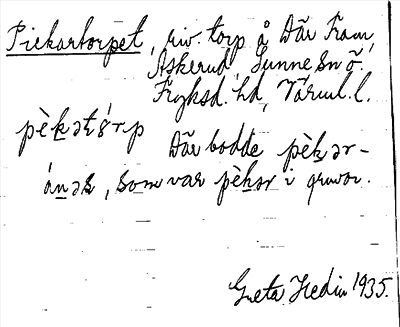 Piekartorpet, riv. torp å Där Fram,
Askerud, Sunne sn ö.
Fryksd. hd, Värml. l.
pèkạtórp Där bodde pèkạr-
ánạs, som var pèkạr i gruvor.
Greta Hedin 1935.